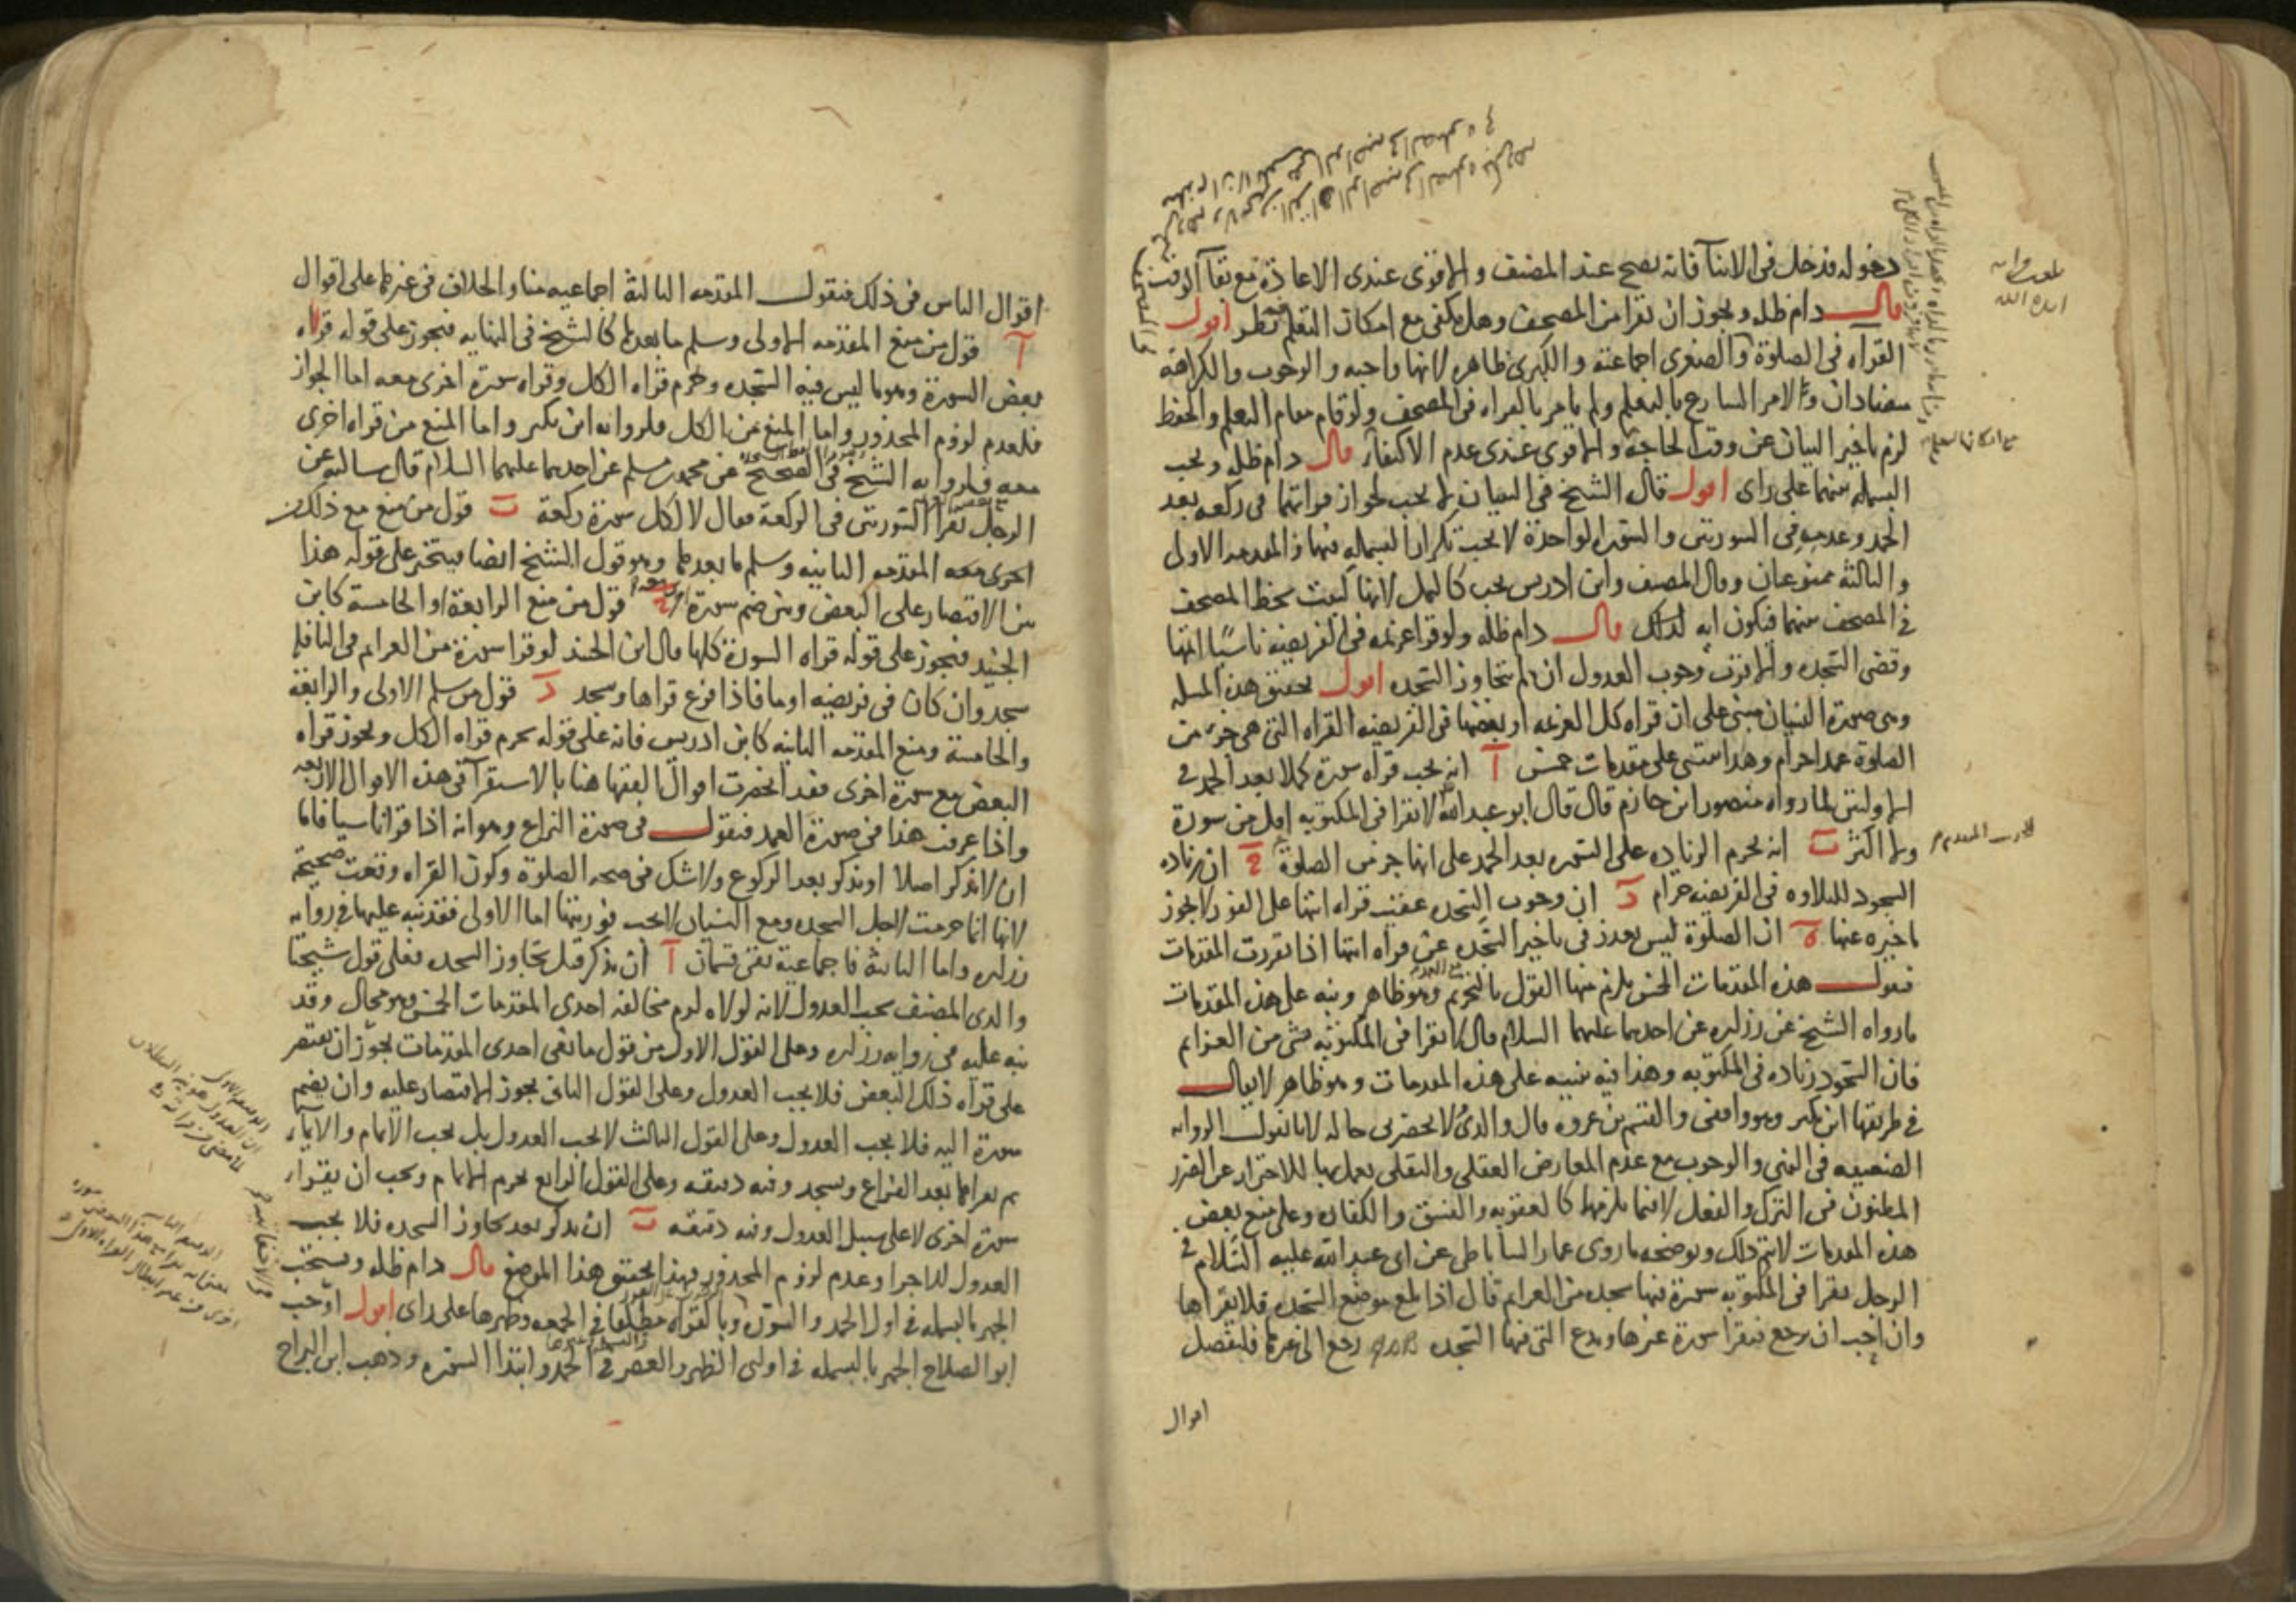 دخوله فدخل فى الاثنا فانه يصح عند المصنف والاقوى عندى الاعادة مع بقا الوقت
قال دام ظله ويجوز ان يقرا من المصحف وهل يكفى مع امكان التعلم نظر اقول
القراه فى الصلوة والصغرى اجماعية والكبرى ظاهره لانها واجبه والوجوب والكراهة
متضادان ولامر الشارع بالتعلم ولم يامر بالقراه فى المصحف ولو قام مقام التعلم والحفظ
لزم تاخير البيان عن وقت الحاجة والاقوى عندى عدم الاكتفاء قال دام ظله وتجب
البسمله بينهما على راى اقول قال الشيخ فى التبيان لا يجب لجواز قراتهما فى ركعه بعد
الحمد وعدمه فى السورتين والسوره الواحدة لا يجب تكرار البسمله فيها والمقدمه الاولى
والثالثة ممنوعتان وقال المصنف وابن ادريس تجب كالنمل لانها كتبت بخط المصحف
فى المصحف بينهما فيكون ايه لذلك قال دام ظله ولو قرا عزيمه فى الفريضه ناسيا اتمها
وقضى السجده والاقرب وجوب العدول ان لم يتجاوز السجده اقول تحقيق هذه المسله
وهى صورة النسيان مبنى على ان قراه كل العزيمه او بعضها فى الفريضه القراه التى هى جزء من
الصلوة عمدا حرام وهذا مبنى على مقدمات خمس آ انه يجب قراه سورة كملا بعد الحمد فى
الاولتين لما رواه منصور ابن حازم قال قال ابو عبد الله لا تقرا فى المكتوبه اقل من سورة
ولا اكثر ب انه يحرم الزياده على السوره بعد الحمد على انها جز من الصلوة ج ان زياده
السجود للتلاوه فى الفريضه حرام د ان وجوب السجده عقيب قراه ايتها على الفور لا يجوز
تاخيره عنها ه ان الصلوة ليس بعذر فى تاخير السجده عن قراه ايتها اذا تقررت المقدمات
فنقول هذه المقدمات الخمس يلزم منها القول بالتحريم وهو ظاهر ونبه على هذه المقدمات
ما رواه الشيخ عن زراره عن احدهما عليهما السلام قال لا تقرا فى المكتوبه بشى من العزايم
فان السجود زياده فى المكتوبه وهذا فيه تنبيه على هذه المقدمات وهو ظاهر لا يقال
فى طريقها ابن بكير وهو واقفى والقسم بن عروه قال والدى لا يحضرنى حاله لانا نقول الروايه
الضعيفه فى النهى والوجوب مع عدم المعارض العقلى والنقلى يعمل بها للاحتراز عن الضرر
المظنون فى الترك والفعل لانهما يلزمهما كالعقوبه والفسق والكفاره وعلى منع بعض
هذه المقدمات لا يتم ذلك ويوضحه ما روى عمار الساباطى عن ابى عبد الله عليه السلام فى
الرجل يقرا فى المكتوبه سورة فيها سجده من العزايم قال اذا بلغ موضع السجده فلا يقراها
وان احب ان يرجع فيقرا سورة غيرها ويدع التى فيها السجده رجع الى غيرها فلنفصل
اقوال
اقوال الناس فى ذلك فنقول المقدمه الثالثة اجماعيه منا والخلاف فى غيرها على اقوال
آ قول من منع المقدمه الاولى وسلم ما بعدها كالشيخ فى النهايه فيجوز على قوله قراه
بعض السورة وهو ما ليس فيه السجده وحرم قراه الكل وقراه سورة اخرى معه اما الجواز
فلعدم لزوم المحذور واما المنع من الكل فلروايه ابن بكير واما المنع من قراه اخرى
معه فلروايه الشيخ فى الصحيح عن محمد بن مسلم عن احدهما عليهما السلام قال سالته عن
الرجل يقرا السورتين فى الركعة فقال لا لكل سورة ركعة ب قول من منع مع ذلك من
اخرى معه المقدمه الثانيه وسلم ما بعدها وهو قول الشيخ ايضا فيتخير على قوله هذا
بين الاقتصار على البعض وبين ضم سورة ج قول من منع الرابعة او الخامسة كابن
الجنيد فيجوز على قوله قراه السورة كلها قال ابن الجنيد لو قرا سورة من العزايم فى النافله
سجد وان كان فى فريضه اوما فاذا فرغ قراها وسجد د قول من سلم الاولى والرابعة
والخامسة ومنع المقدمه الثانيه كابن ادريس فانه على قوله يحرم قراه الكل ويجوز قراه
البعض مع سورة اخرى فقد انحصرت اقوال الفقها هنا بالاستقرا فى هذه الاقوال الاربعه
واذا عرفت هذا فى صورة العمد فنقول فى صورة النزاع وهو انه اذا قرا ناسيا فاما
ان لا يذكر اصلا او يذكر بعد الركوع ولا شك فى صحه الصلوة وكون القراه وقعت صحيحة
لانها انما حرمت لاجل السجده ومع النسيان لا يجب فوريتها اما الاولى فقد نبه عليها فى روايه
زراره واما الثانية فاجماعية بقى قسمان آ ان يذكر قبل تجاوز السجده فعلى قول شيخنا
والدى المصنف يجب العدول لانه لولاه لزم مخالفه احدى المقدمات الخمس وهو محال وقد
نبه عليه فى روايه زراره وعلى القول الاول من قول مانعى احدى المقدمات يجوز ان يقتصر
على قراه ذلك البعض فلا يجب العدول وعلى القول الثانى يجوز الاقتصار عليه وان يضم
سورة اليه فلا يجب العدول وعلى القول الثالث لا يجب العدول بل يجب الاتمام والايماء
ثم يقراها بعد الفراغ ويسجد وفيه دقيقه وعلى القول الرابع يحرم الاتمام ويجب ان يقرا
سورة اخرى لا على سبيل العدول وفيه دقيقه ب ان يذكر بعد تجاوز السجده فلا يجب
العدول للاجزا وعدم لزوم المحذور فهذا تحقيق هذا الموضع قال دام ظله ويستحب
الجهر بالبسمله فى اول الحمد والسورة وبالقراه مطلقا فى الجمعه وظهرها على راى اقول اوجب
ابو الصلاح الجهر بالبسمله فى اولتى الظهر والعصر فى الحمد وابتدا السوره وذهب ابن البراج